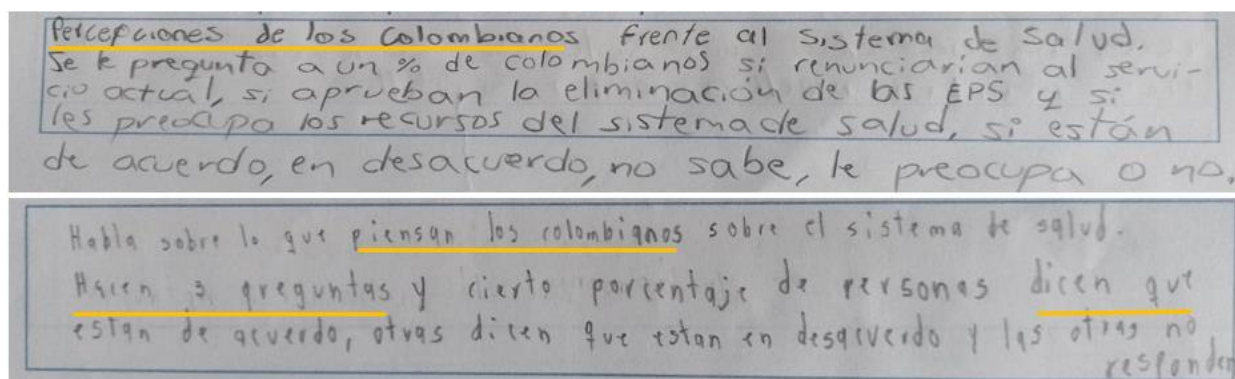 Percepciones de los colombianos frente al sistema de salud.
Se le pregunta a un % de colombianos si renunciarían al servi-
cio actual, si aprueban la eliminación de las EPS y si
les preocupa los recursos del sistema de salud, si están
de acuerdo, en desacuerdo, no sabe, le preocupa o no.
Habla sobre lo que piensan los colombianos sobre el sistema de salud.
Hacen 3 preguntas y cierto porcentaje de personas dicen que
estan de acuerdo, otras dicen que estan en desacuerdo y las otras no
responden